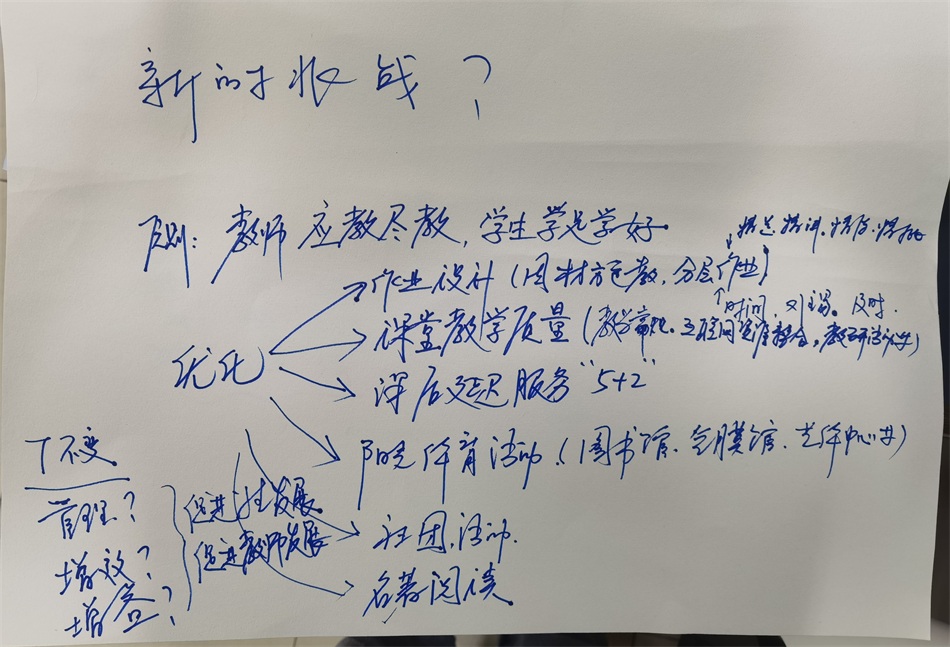 新的挑战？
原则：教师应教尽教，学生学足学好
精选、精讲、精练、精批
作业设计（因材施教，分层作业）
时间、对错、及时
课堂教学质量（教学常规、互联网资源整合，教研活动等）
优化
课后延迟服务“5+2”
不变
阳光体育活动（图书馆、足膜馆、艺体中心等）
管理？
促进学生发展
增效？
促进教师发展
社团活动
增值？
名著阅读